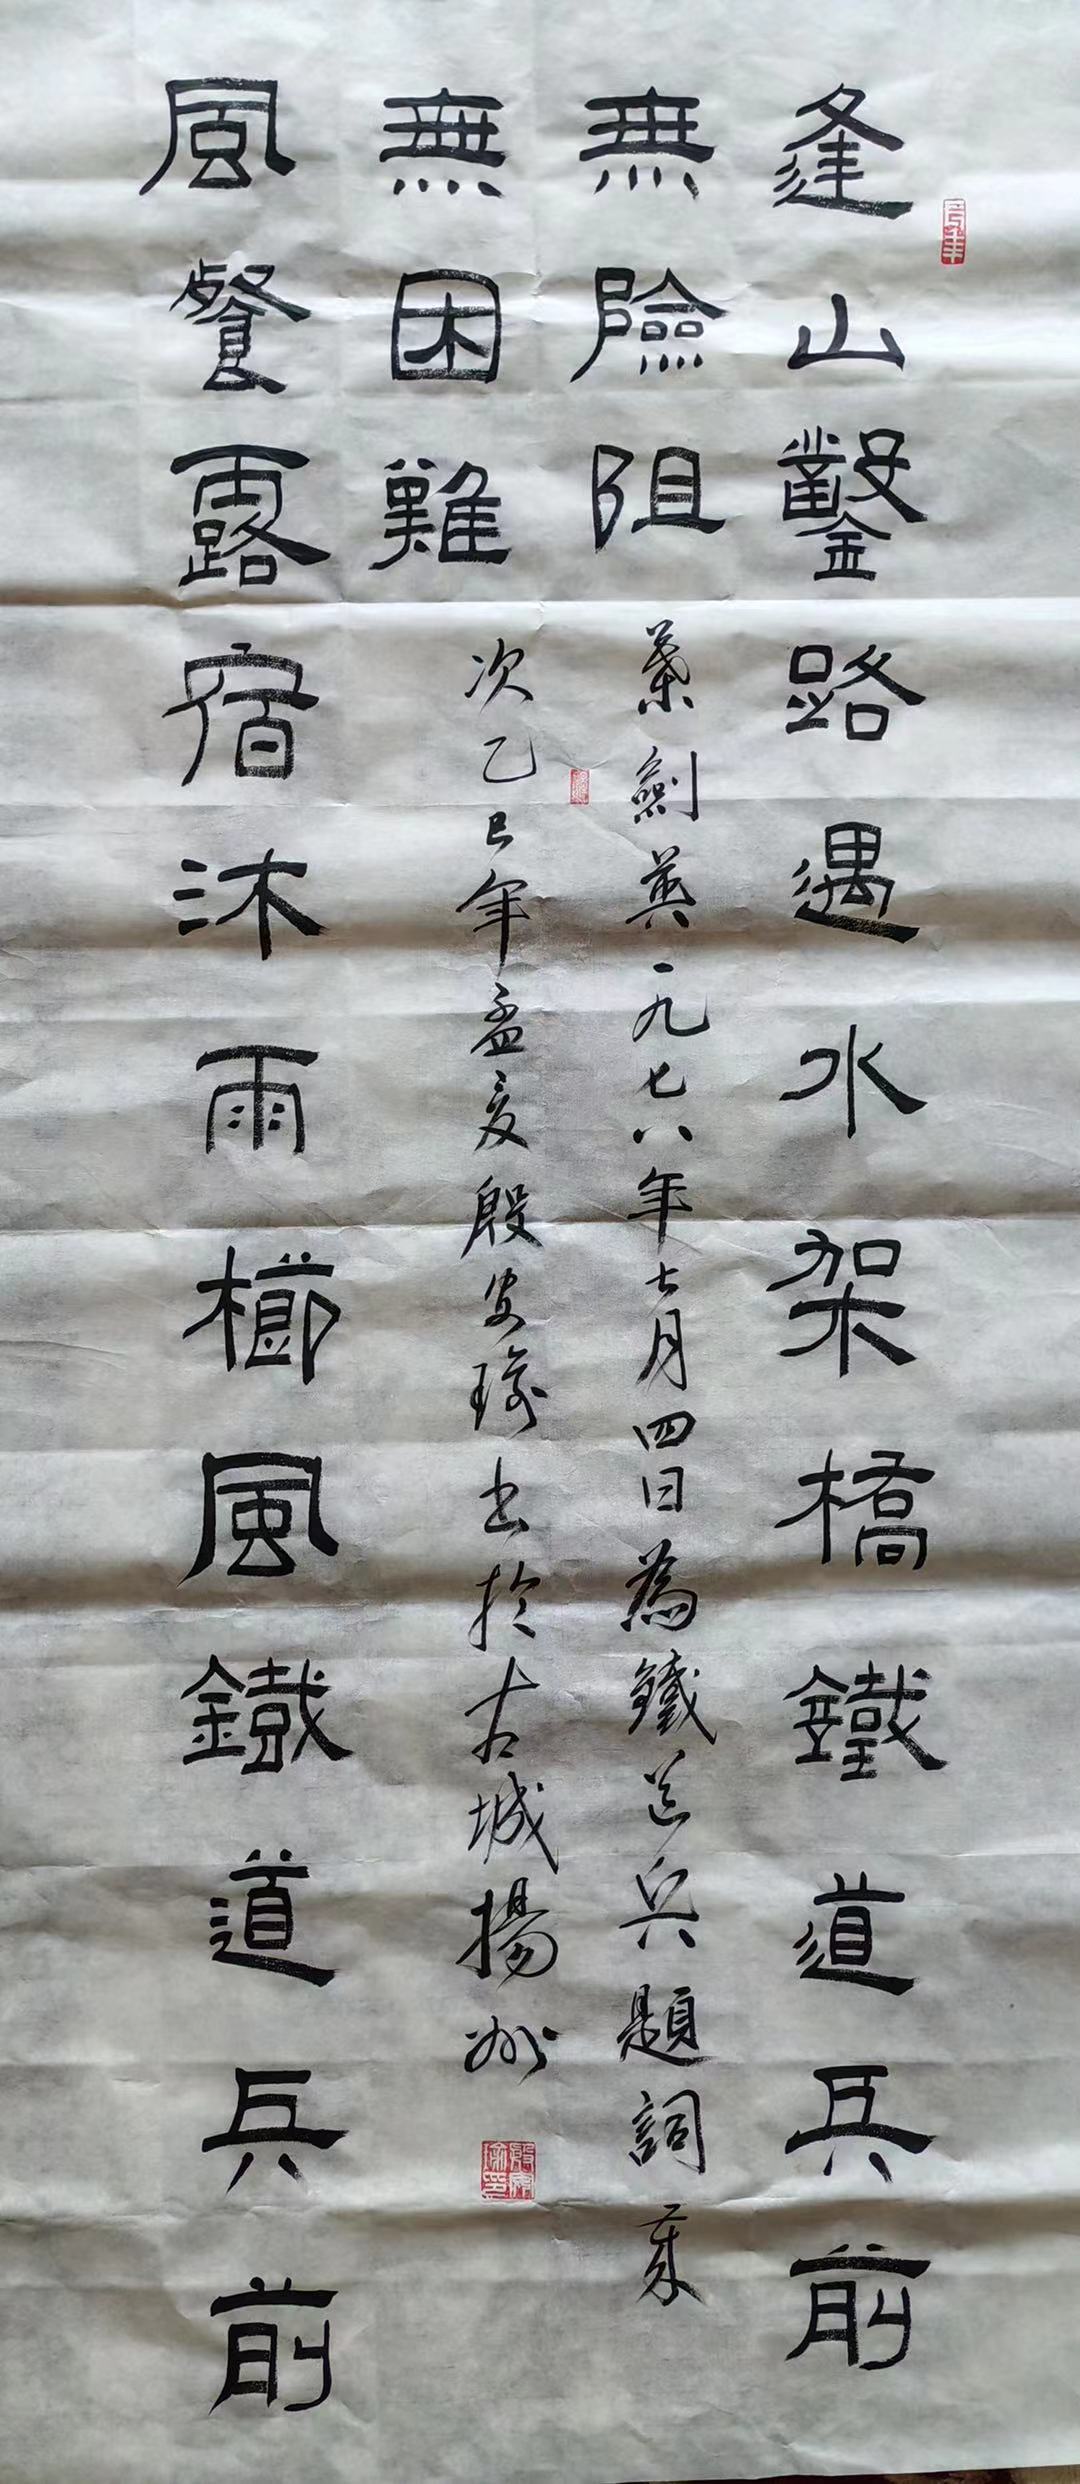 逢山鑿路遇水架橋鐵道兵前
無險阻
葉劍英一九七八年七月四日為鐵道兵題詞 歲
無困難
次乙巳年孟夏殷安瑜書於古城揚州
風餐露宿沐雨櫛風鐵道兵前